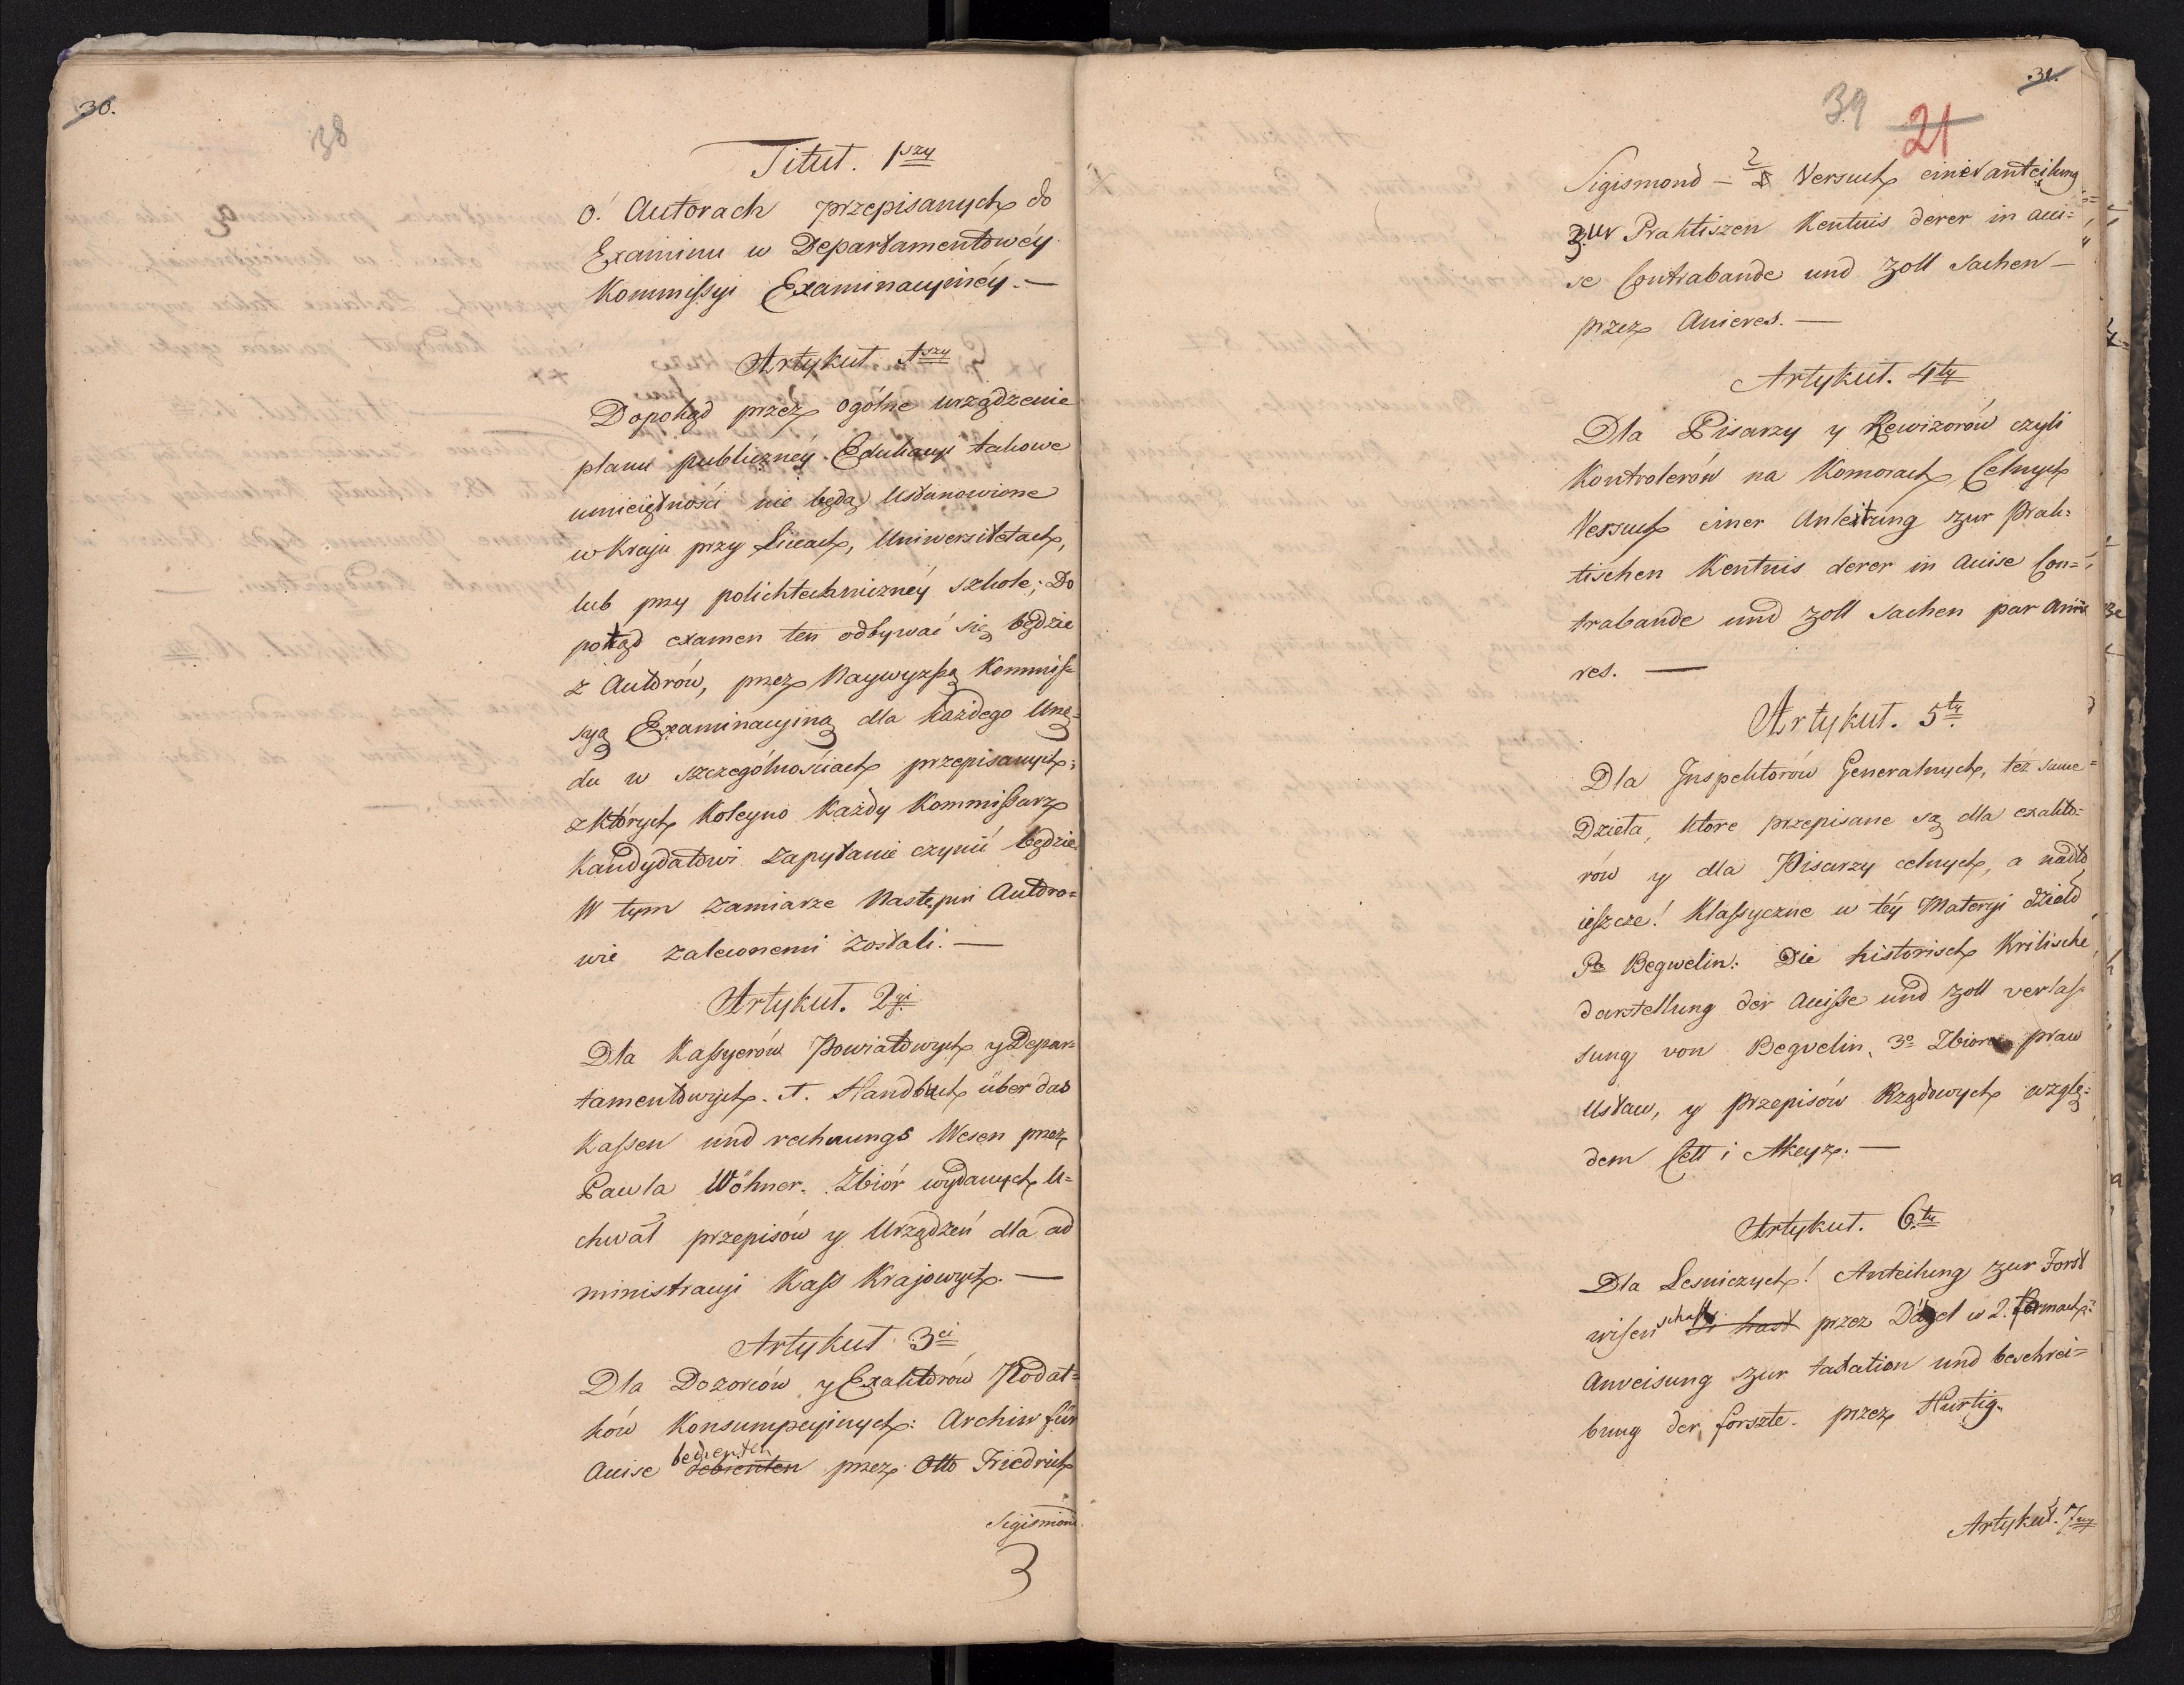 30.
38
Tituł. 1szy
O! Autorach przepisanych do
Examinu w Departamentowéy
Kommissyi Examinacyinéy. —
Artykuł 1szy
Dopokąd przez ogólne urządzenie
planu publicznéy Edukacyi takowe
umieiętności nie będą ustanowione
w Kraju przy Liceach, Uniwersitetach,
lub przy polichtechniczney szkole; Do
potąd examen ten odbywać się będzie
z Autorów, przez Naywyższą Kommis-
syą Examinacyiną dla każdego Urzę-
du w szczególnościach przepisanych;
z których koleyno każdy Kommissarz
Kandydatowi zapytanie czynić będzie.
W tym zamiarze Następni Autoro=
wie zaleconemi zostali. —
Artykuł. 2gi
Dla Kassyerów Powiatowych y Depar=
tamentowych. 1. Handbuch über das
Kassen und rechnungs Wesen przez
Pawła Wöhner. Zbiór wydanych U=
chwał przepisów y Urządzeń dla ad
ministracyi Kass Krajowych. —
Artykuł 3ci
Dla Dozorców y Exaktorów Podat=
ków Konsumpcyinych: Archiw für
bedienten
Accise debienten przez Otto Friedrich
Sigismond
3
31.
39
21
Sigismond — 2 Versuch einer anteilung
zur Praktiszen Kentnis derer in acci=
se Contrabande und Zoll Sachen —
przez Anieres. —
Artykuł. 4ty
Dla Pisarzy y Rewizorów czyli
Kontrolerów na Komorach Celnych
Versuch einer Anleitung zur Prak=
tischen Kentnis derer in Accise Con=
trabande und Zoll Sachen par Anie
res. —
Artykuł. 5ty
Dla Inspektorów Generalnych, też same
Dzieła, ktore przepisane są dla exakto=
rów y dla Pisarzy celnych, a nadto
ieszcze! Klassyczne w téy Materyi dzieło
Pa Begwelin: Die historisch Kritische
darstellung der Accisse und Zoll verfas-
sung von Begvelin, 3e Zbiore praw
Ustaw, y przepisów Rządowych wzglę=
dem Cełł i Akcyz. —
Artykuł. 6ty
Dla Lesniczych! Anteilung zur Forst
wisenschaft przez Däzel w 2. tomach
Anveisung zur taxation und beschrei=
bung der forszte. przez Hartig.
Artykuł. 7my